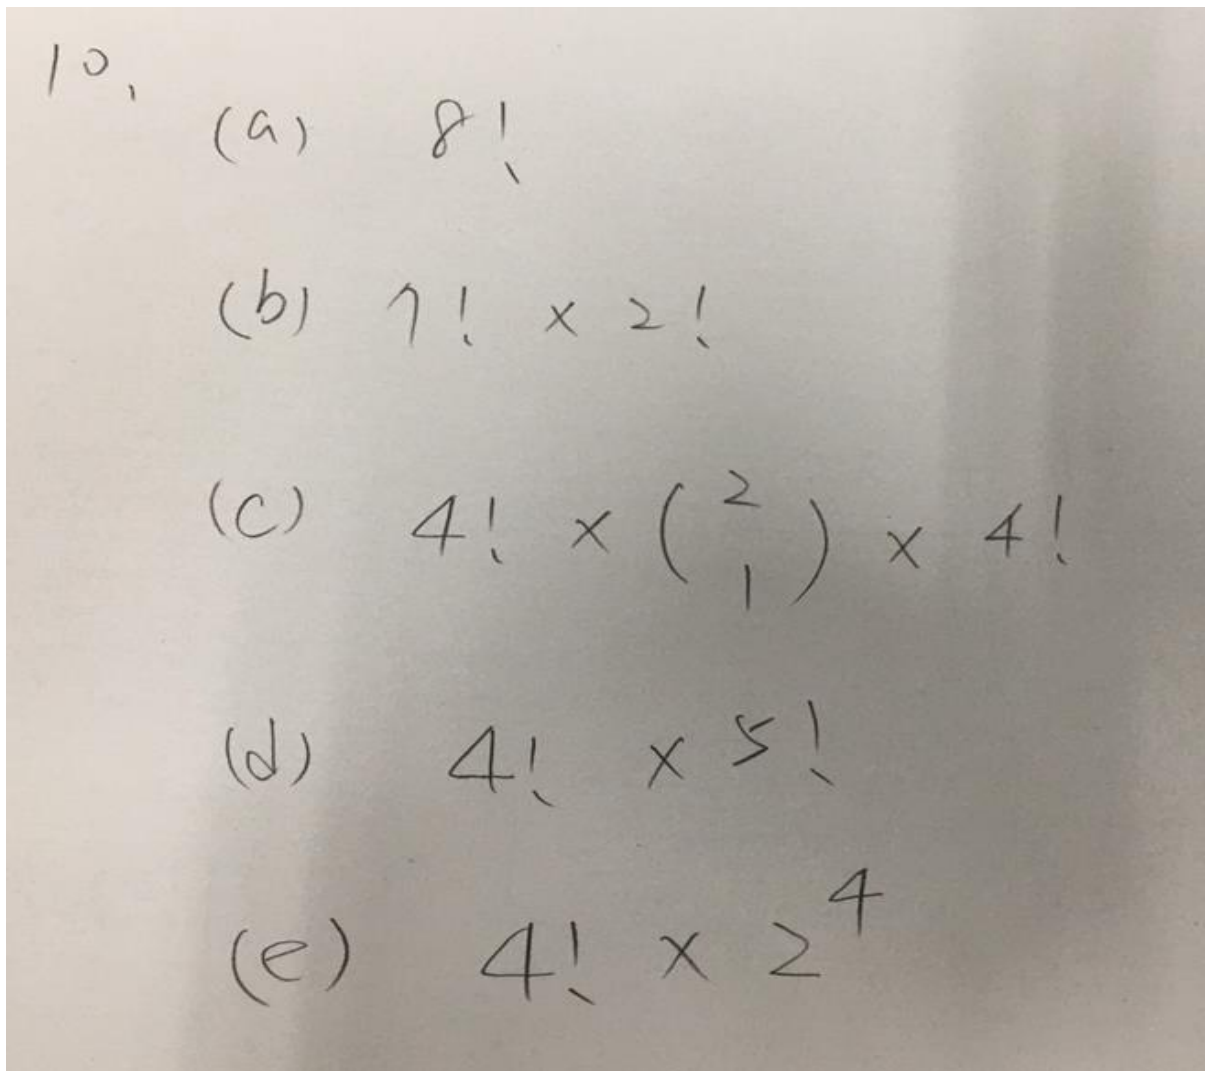 10.
(a) 8!
(b) 7! × 2!
(c) 4! × (2 1) × 4!
(d) 4! × 5!
(e) 4! × 2^4